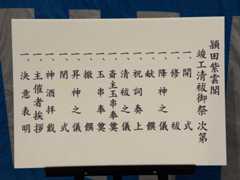 頴田紫雲閣
竣工清祓御祭 次第
一、開式
一、修祓
一、降神之儀
一、献饌
一、祝詞奏上
一、清祓之儀
一、斎主玉串奉奠
一、玉串奉奠
一、撤饌
一、昇神之儀
一、閉式
一、神酒拝戴
一、主催者挨拶
一、決意表明